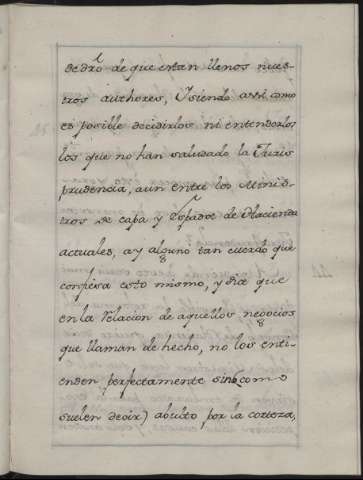 de dro de que estan llenos nues-
tros authores, Y siendo assi como
es posible decidirlos ni entenderlos
los que no han saludado la Juris
prudencia, aun entre los Minis-
tros de capa y Espada de Hacienda
actuales, ay alguno tan cuerdo que
confiesa esto mismo, y dice que
en la relacion de aquellos negocios
que llaman de hecho, no los enti-
enden perfectamente sino (como
suelen decir) abulto por la corteza,